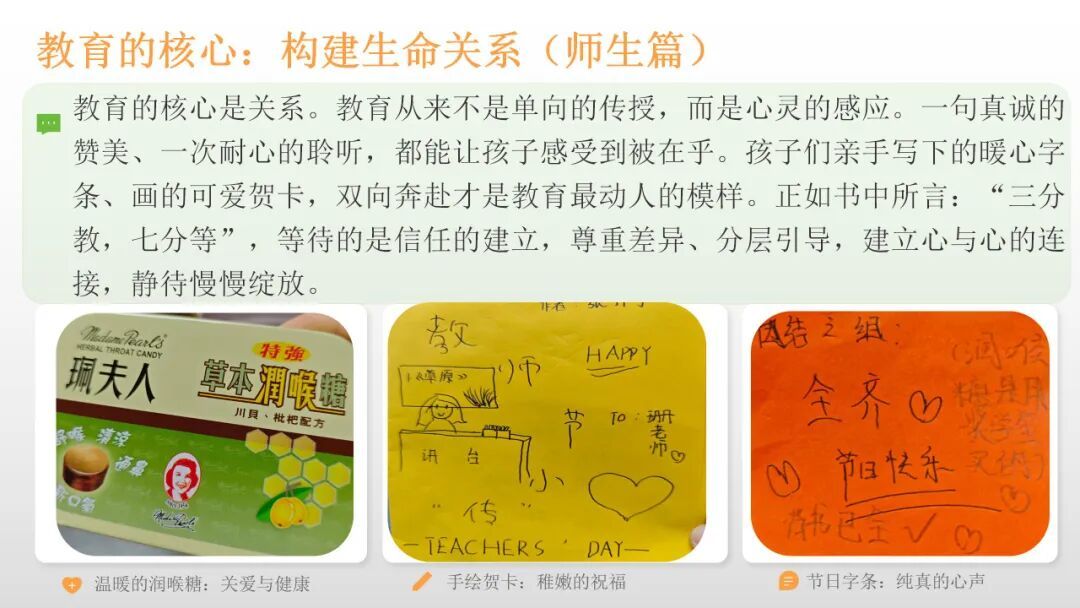 教育的核心：构建生命关系（师生篇）
教育的核心是关系。教育从来不是单向的传授，而是心灵的感应。一句真诚的
赞美、一次耐心的聆听，都能让孩子感受到被在乎。孩子们亲手写下的暖心字
条、画的可爱贺卡，双向奔赴才是教育最动人的模样。正如书中所言：“三分
教，七分等”，等待的是信任的建立，尊重差异、分层引导，建立心与心的连
接，静待慢慢绽放。
Madame Pearl's
HERBAL THROAT CANDY
珮夫人
特強
草本潤喉糖
川貝、枇杷配方
通鼻
教
师
节
HAPPY
《草原》
TO：珊
老师
讲台
小
“传”
—TEACHERS' DAY—
团结之组：
全齐
节日快乐
背书已全
温暖的润喉糖：关爱与健康
手绘贺卡：稚嫩的祝福
节日字条：纯真的心声